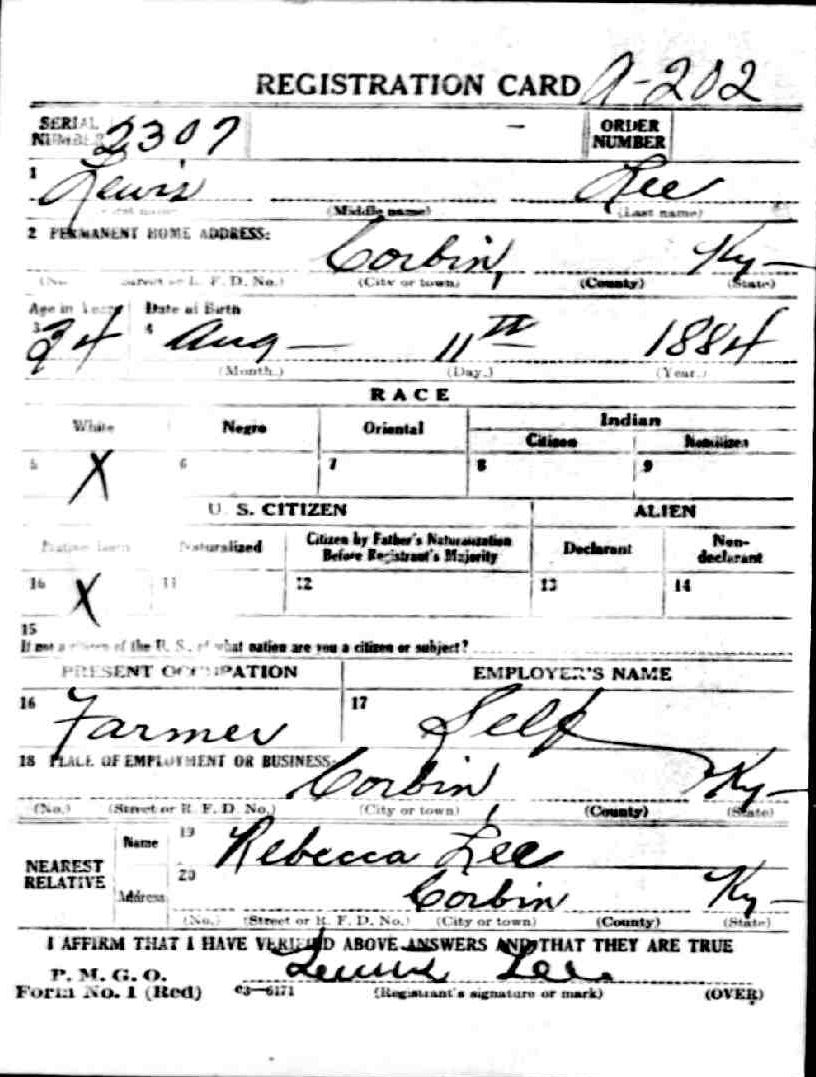 REGISTRATION CARD A-202
SERIAL NUMBER 2307 — ORDER NUMBER
1 Lewis Lee
(First name) (Middle name) (Last name)
2 PERMANENT HOME ADDRESS:
Corbin, Ky —
(No.) (Street or R. F. D. No.) (City or town) (County) (State)
Age in Years Date of Birth
3 34 4 Aug — 11th 1884
(Month.) (Day.) (Year.)
RACE
White Negro Oriental Indian
Citizen Noncitizen
5 X 6 7 8 9
U. S. CITIZEN ALIEN
Native Born Naturalized Citizen by Father's Naturalization Before Registrant's Majority Declarant Non-declarant
10 X 11 12 13 14
15
If not a citizen of the U. S., of what nation are you a citizen or subject?
PRESENT OCCUPATION EMPLOYER'S NAME
16 Farmer 17 Self
18 PLACE OF EMPLOYMENT OR BUSINESS:
Corbin, Ky —
(No.) (Street or R. F. D. No.) (City or town) (County) (State)
NEAREST RELATIVE
Name 19 Rebecca Lee
Address 20 Corbin Ky —
(No.) (Street or R. F. D. No.) (City or town) (County) (State)
I AFFIRM THAT I HAVE VERIFIED ABOVE ANSWERS AND THAT THEY ARE TRUE
P. M. G. O.
Form No. 1 (Red) 03—6171 Lewis Lee
(Registrant's signature or mark) (OVER)